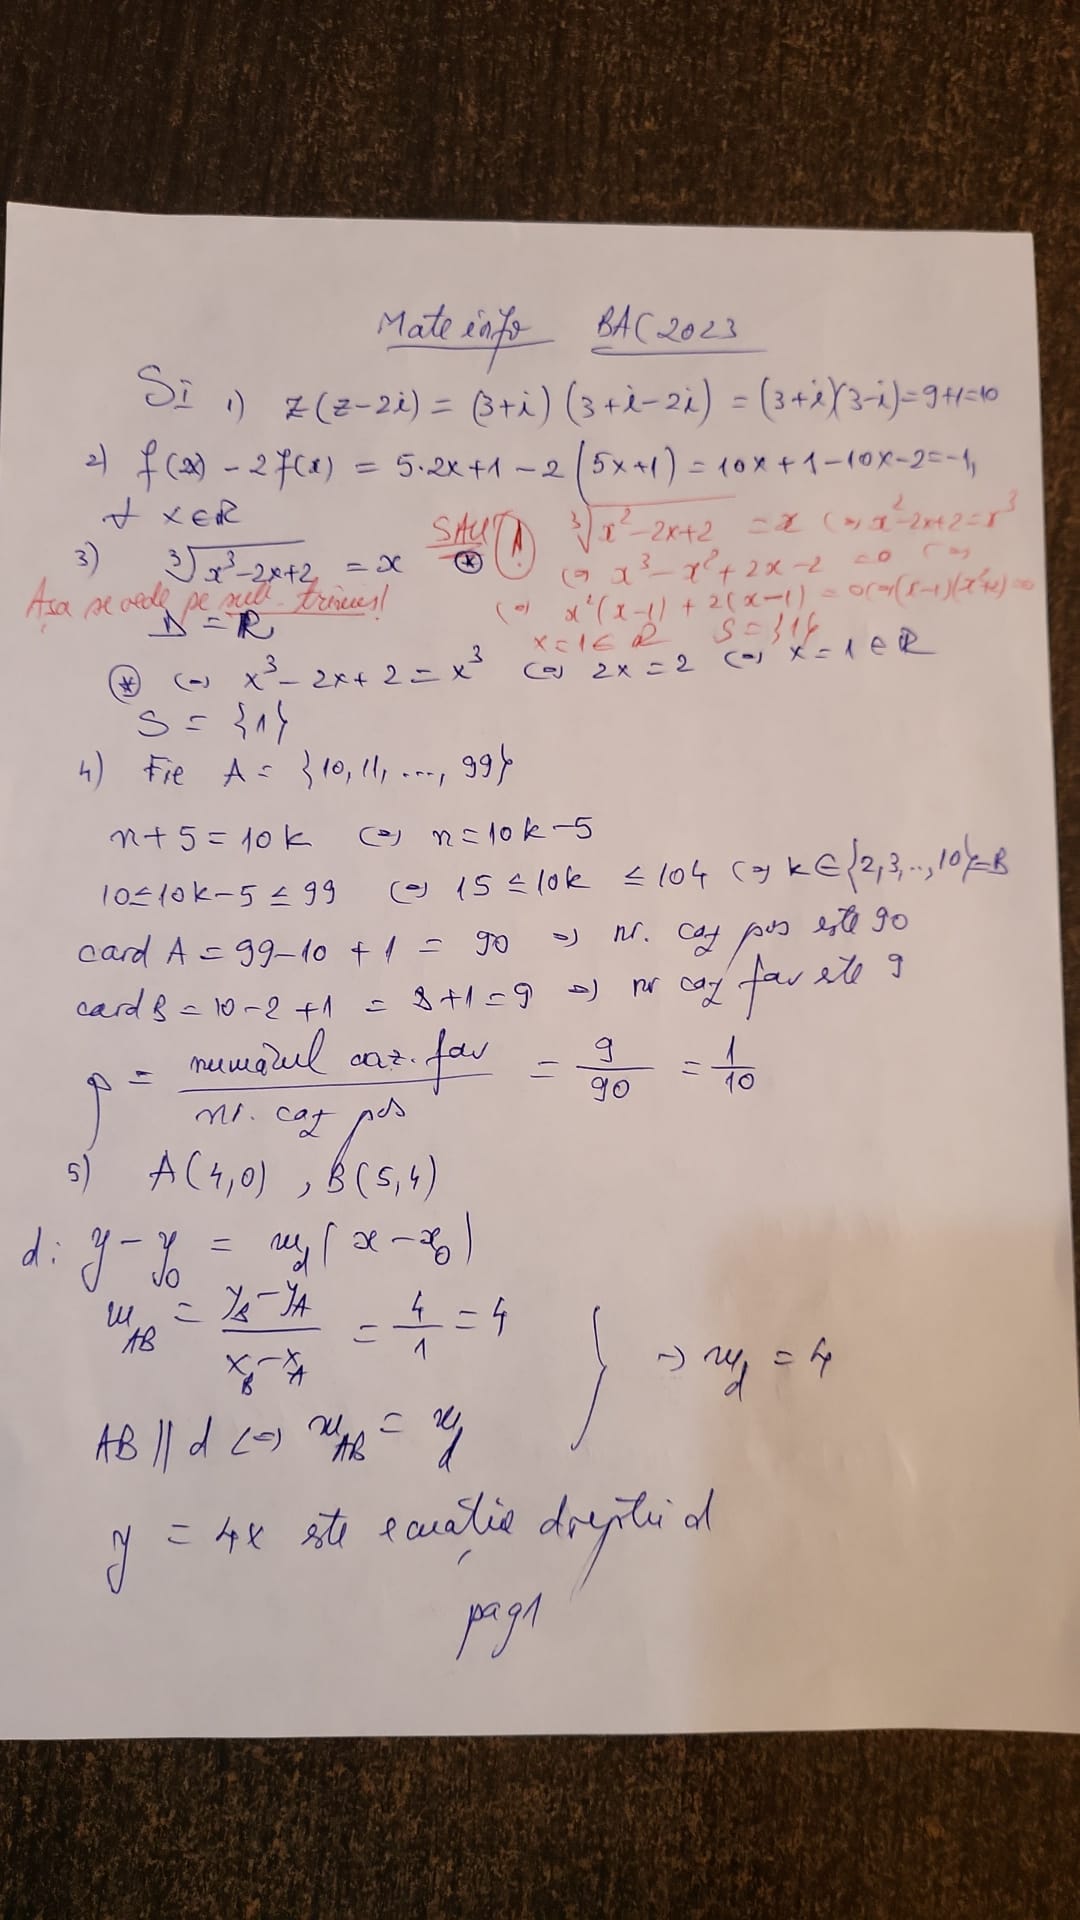 Mate info BAC 2023
SI 1) z(z-2i) = (3+i)(3+i-2i) = (3+i)(3-i)=9+1=10
2) f(2x) - 2f(x) = 5·2x+1 - 2(5x+1) = 10x+1-10x-2=-1,
∀ x∈R
3) ∛(x³-2x+2) = x ⊛
Așa se vede pe sub. trimis!
SAU ! ∛(x²-2x+2) = x <=> x²-2x+2=x³
<=> x³-x²+2x-2=0 <=>
<=> x²(x-1)+2(x-1)=0 <=> (x-1)(x²+2)=0
x=1∈R S={1}
D = R
⊛ <=> x³-2x+2=x³ <=> 2x=2 <=> x=1∈R
S = {1}
4) Fie A = {10, 11, ..., 99}
n+5=10k <=> n=10k-5
10≤10k-5≤99 <=> 15≤10k≤104 <=> k∈{2,3,..,10}=B
card A = 99-10+1 = 90 => nr. caz pos este 90
card B = 10-2+1 = 8+1=9 => nr caz fav este 9
p = numărul caz. fav / nr. caz pos = 9/90 = 1/10
5) A(4,0), B(5,4)
d: y-y₀ = m_d(x-x₀)
m_AB = (y_B-y_A)/(x_B-x_A) = 4/1 = 4
=> m_d = 4
AB || d <=> m_AB = m_d
y = 4x este ecuația dreptei d
pag1